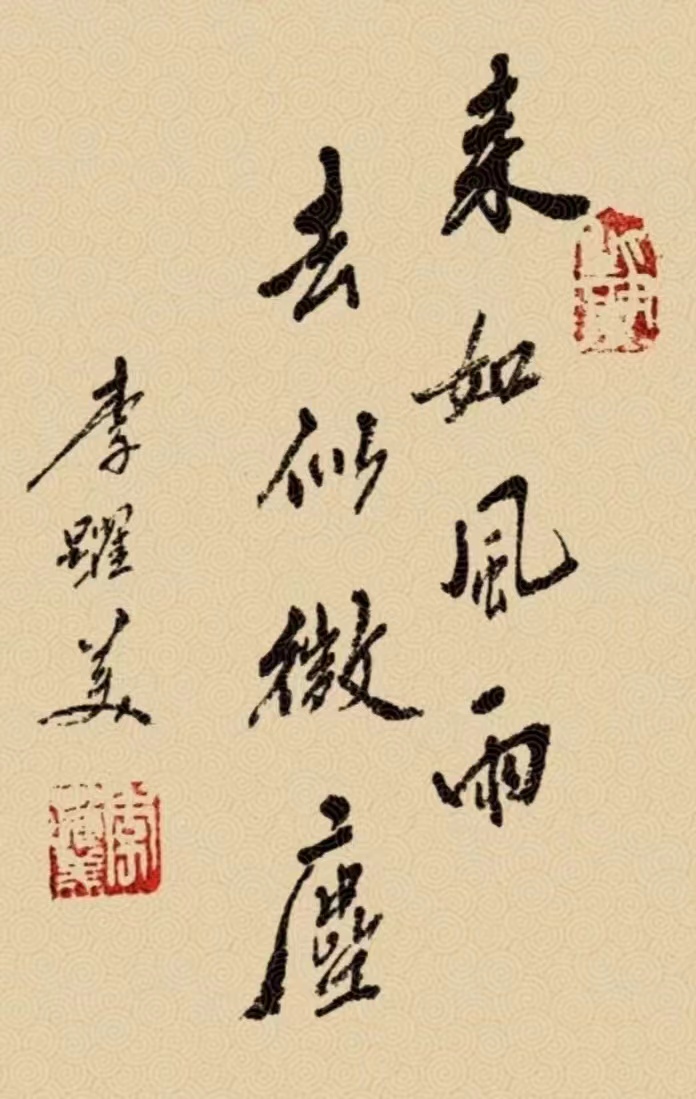 来如風雨
去似微塵
李躍美